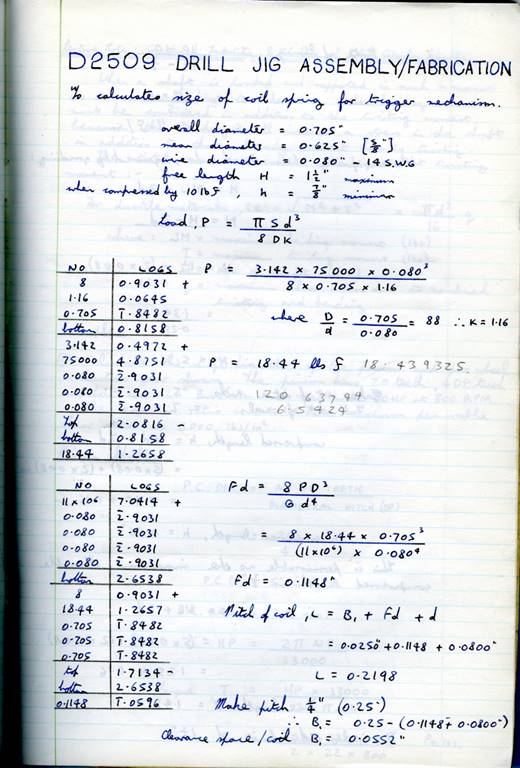 D2509 DRILL JIG ASSEMBLY/FABRICATION
To calculate size of coil spring for trigger mechanism.
overall diameter = 0.705"
mean diameter = 0.625" [5/8"]
wire diameter = 0.080" - 14 S.W.G
free length H = 1 1/2" maximum
when compressed by 10 lbf, h = 7/8" minimum
Load, P = π S d³ / 8 DK
NO LOGS
8 0.9031 +
1.16 0.0645
0.705 1̄.8482
bottom 0.8158
3.142 0.4972 +
75000 4.8751
0.080 2̄.9031
0.080 2̄.9031
0.080 2̄.9031
top 2.0816 -
bottom 0.8158
18.44 1.2658
P = 3.142 x 75000 x 0.080³ / 8 x 0.705 x 1.16
where D/d = 0.705/0.080 = 88 ∴ K = 1.16
P = 18.44 lbs f 18.439325
120 63744
6.5424
NO LOGS
11 x 10⁶ 7.0414 +
0.080 2̄.9031
0.080 2̄.9031
0.080 2̄.9031
0.080 2̄.9031
bottom 2.6538
8 0.9031 +
18.44 1.2657
0.705 1̄.8482
0.705 1̄.8482
0.705 1̄.8482
top 1.7134 -
bottom 2.6538
0.1148 1̄.0596
Fd = 8 P D³ / G d⁴
= 8 x 18.44 x 0.705³ / (11 x 10⁶) x 0.080⁴
Fd = 0.1148"
Pitch of coil, L = B, + Fd + d
= 0.0250" + 0.1148 + 0.0800"
L = 0.2198
Make pitch 1/4" (0.25")
∴ B, = 0.25 - (0.1148 + 0.0800")
Clearance space/coil B, = 0.0552"